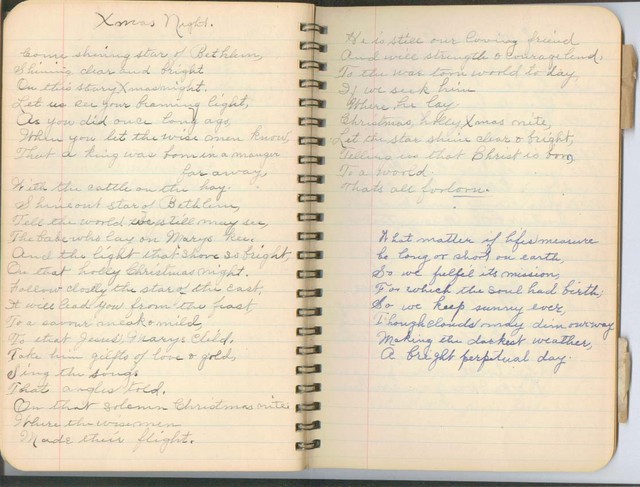 Xmas Night.
Come shining star of Bethlem,
Shining clear and bright
On this stary Xmas night.
Let us see your beaming light,
As you did once long ago
When you let the wise men know,
That a king was born in a manger
far away
With the cattle on the hay.
Shine out star of Bethlem,
Tell the world we still may see,
The babe who lay on Marys knee.
And the light that shone so bright,
On that holly Christmas night.
Follow closly the star of the east,
It will lead you from the
To a savour meek & mild,
To that Jesus, Marys Child.
Take him guifts of love & gold,
Sing the songs
That angles told.
On that solemn Christmas nite
Where the wise men
Made their flight.
He is still our loving friend
And will strength & courage lend.
To the war torn world to day,
If we seek him
Where he lay.
Christmas, holly Xmas nite,
Let the star shine clear & bright,
Telling us that Christ is born
To a world.
Thats all forlorn.
What matter if lifes measure
be long or short on earth,
So we fulfil its mission,
For which the soul had birth;
So we keep sunny ever,
Though clouds may dim our way
Making the darkest weather,
A bright perpetual day.